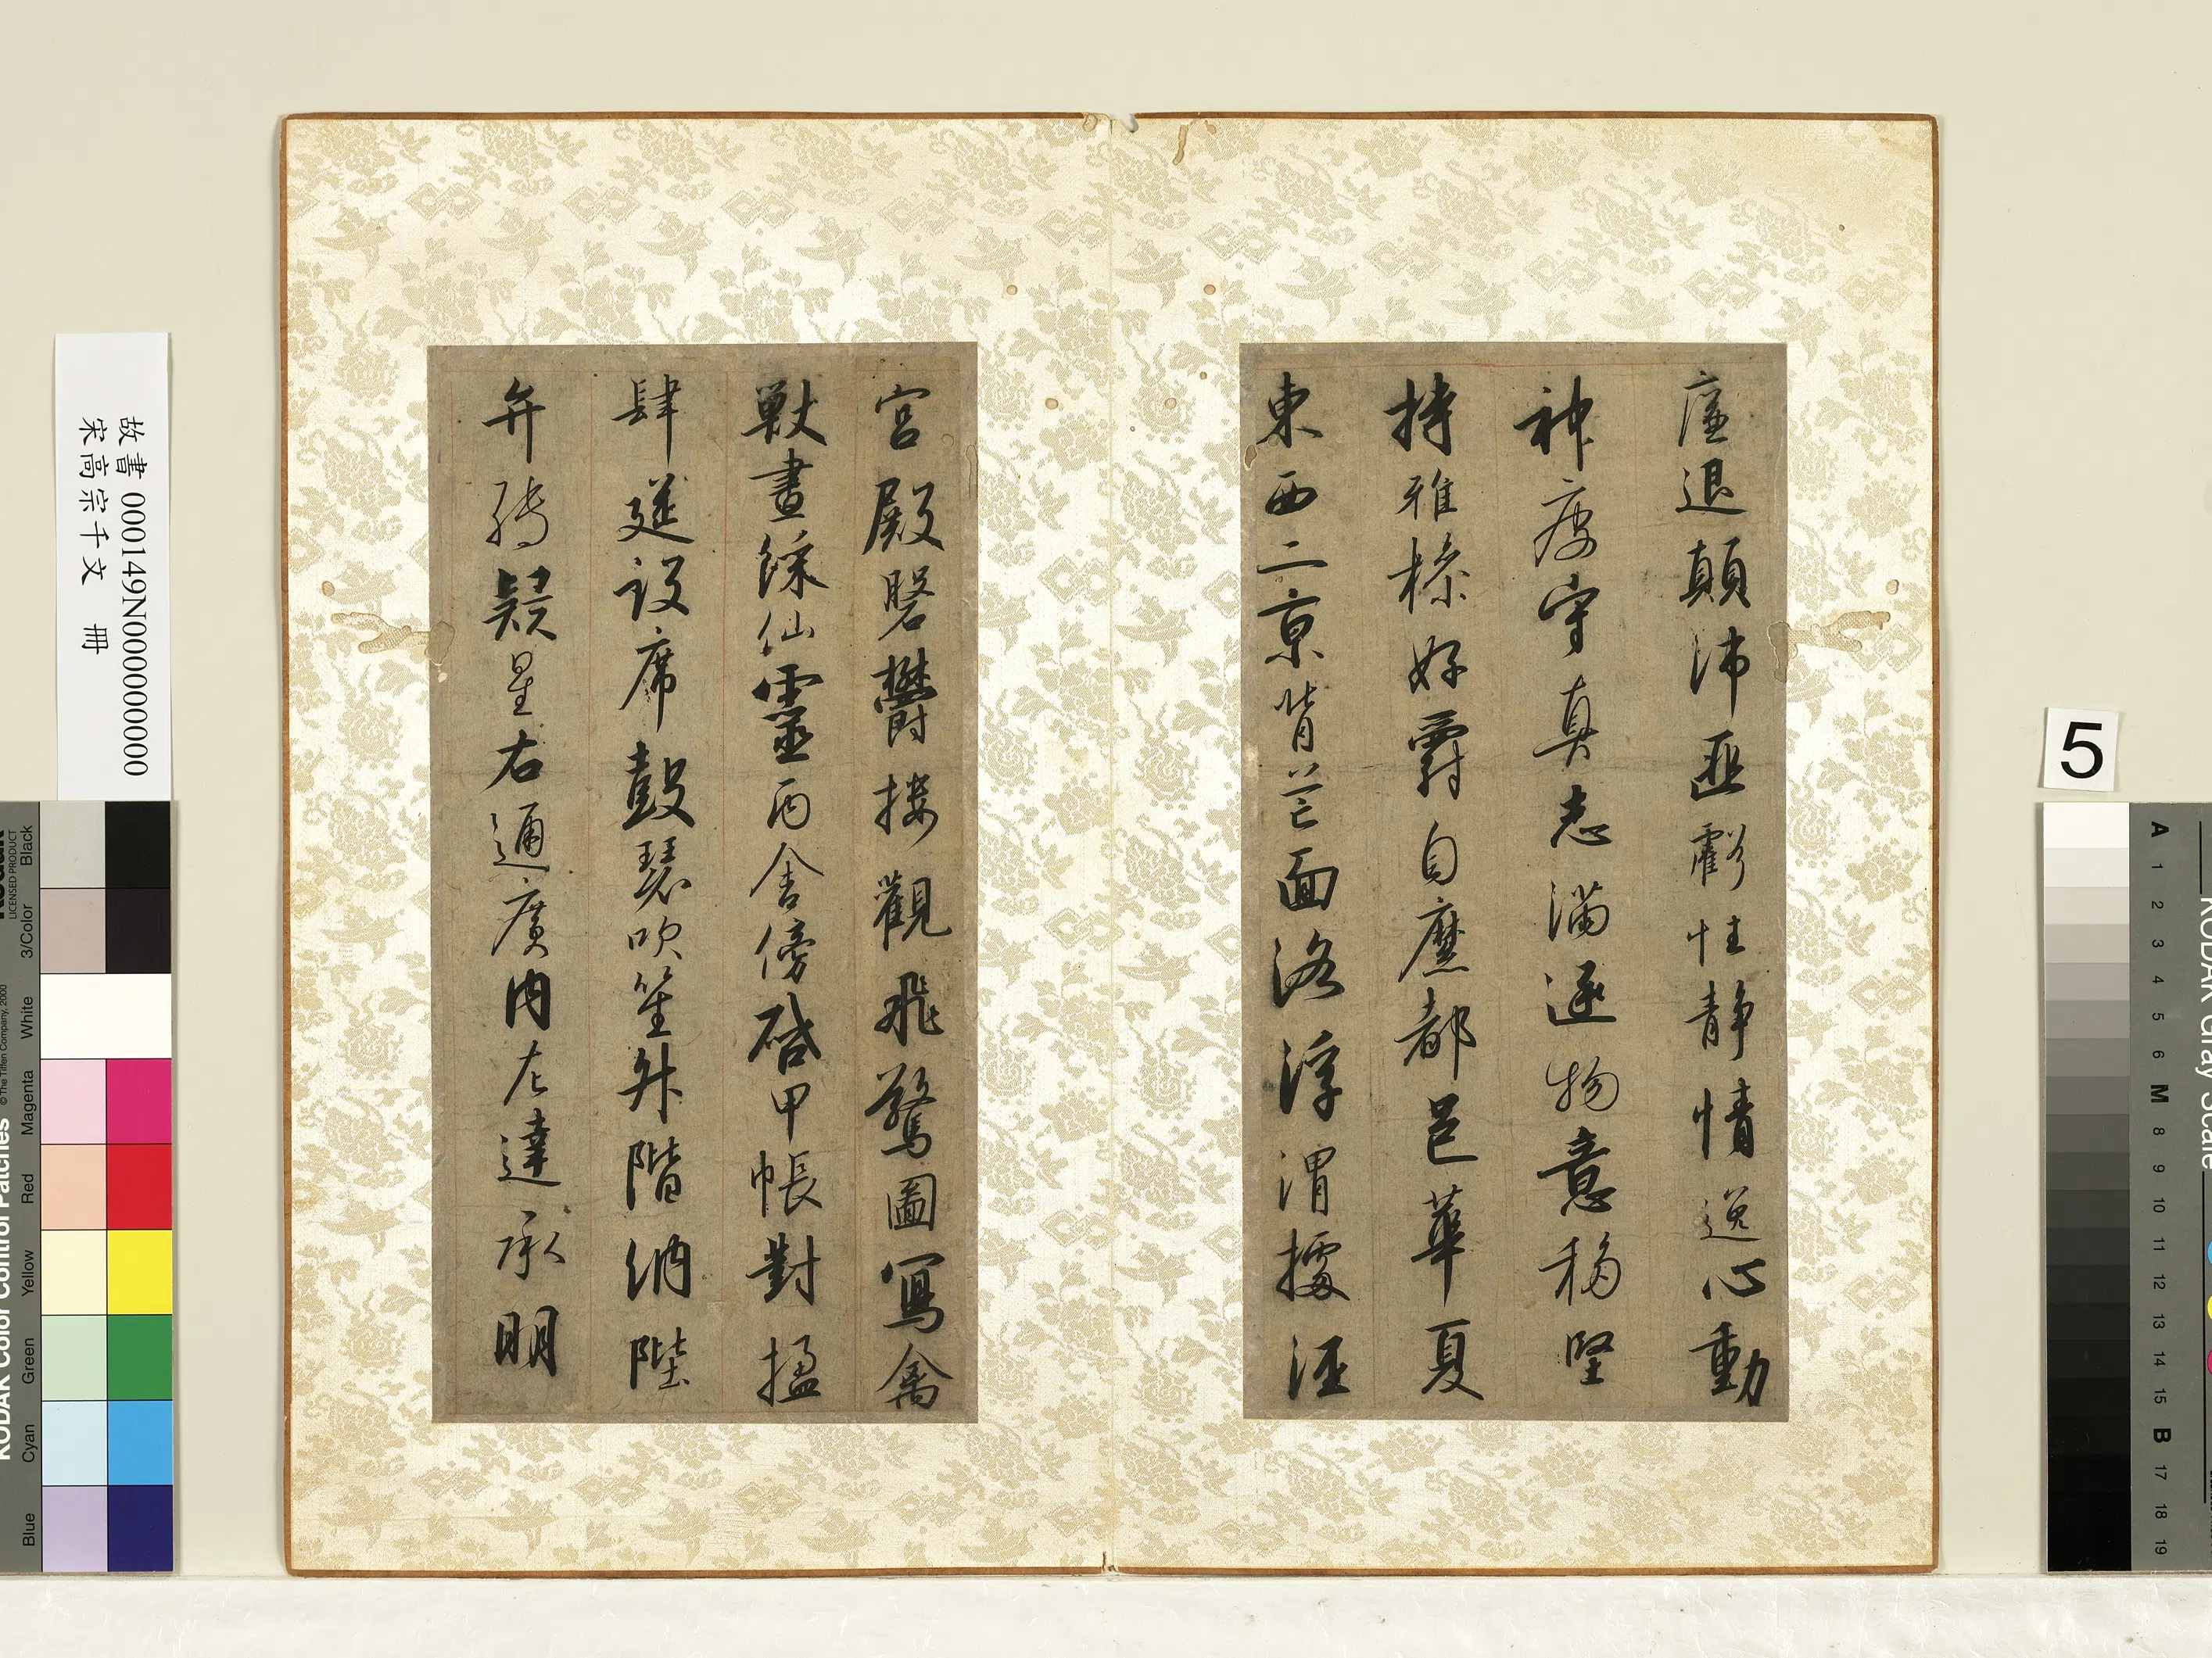 廉退顛沛匪虧性靜情逸心動
神疲守真志滿逐物意移堅
持雅操好爵自縻都邑華夏
東西二京背芒面洛浮渭據涇
宮殿磐欝樓觀飛驚圖寫禽
獸畫綵仙靈丙舍傍啓甲帳對楹
肆筵設席鼓瑟吹笙升階納陛
弁轉疑星右通廣內左達承明
故書 000149N000000000
宋高宗千文 冊
5
KODAK Color Control Patches
© The Tiffen Company, 2000
LICENSED PRODUCT
Blue Cyan Green Yellow Red Magenta White 3/Color Black
KODAK Gray Scale
A 1 2 3 4 5 6 M 8 9 10 11 12 13 14 15 B 17 18 19